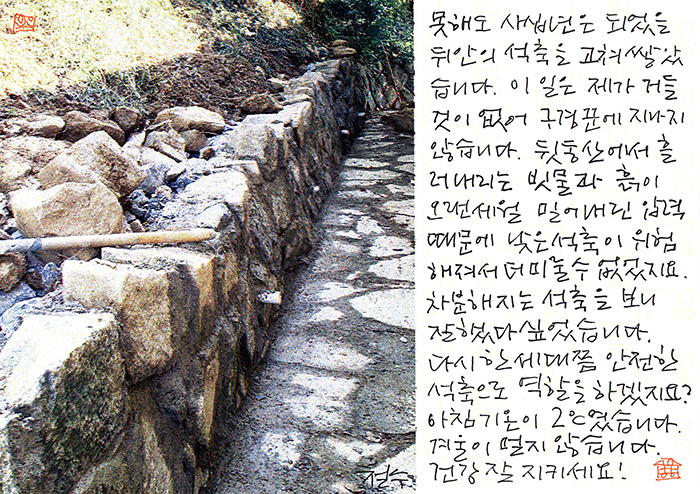 못해도 사십년은 되었을
뒤안의 석축을 고쳐쌓았
습니다. 이 일은 제가 거들
것이 없어 구경꾼에 지나지
않습니다. 뒷동산에서 흘
러내리는 빗물과 흙이
오랜세월 밀어내린 압력
때문에 낮은석축이 위험
해져서 더 미룰 수 없었지요.
차분해지는 석축을 보니
잘했다 싶었습니다.
다시 한 세대쯤 안전한
석축으로 역할을 하겠지요?
아침기온이 2℃였습니다.
겨울이 멀지 않습니다.
건강 잘 지키세요!
철수